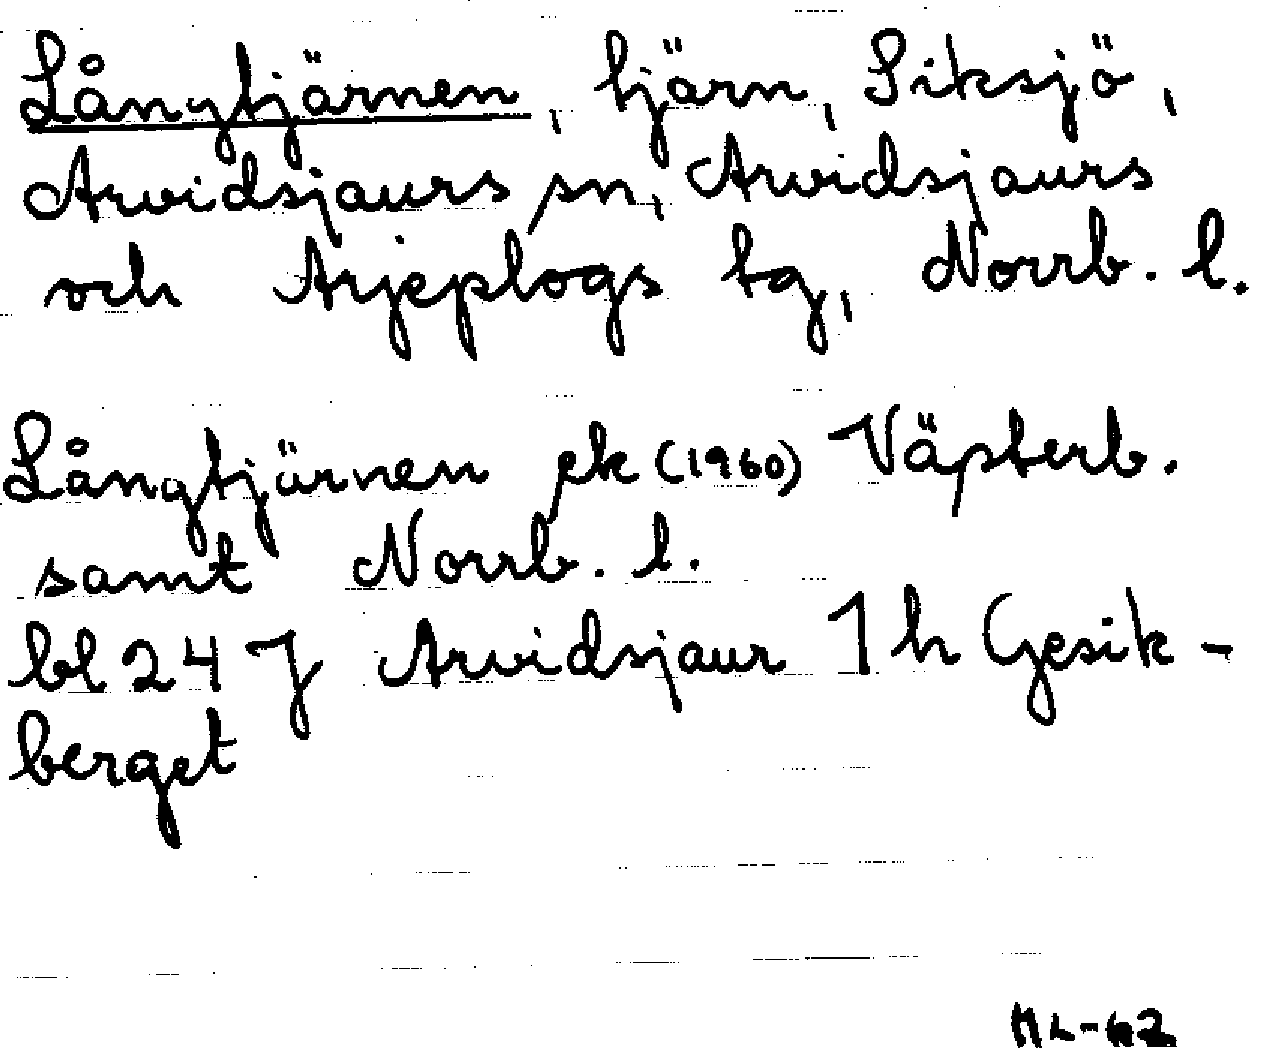 Långtjärnen, tjärn, Siksjö,
Arvidsjaurs sn, Arvidsjaurs
och Arjeplogs tg, Norrb. l.
Långtjärnen ek (1960) Västerb.
samt Norrb. l.
bl 24 J Arvidsjaur 1 h Gesik-
berget